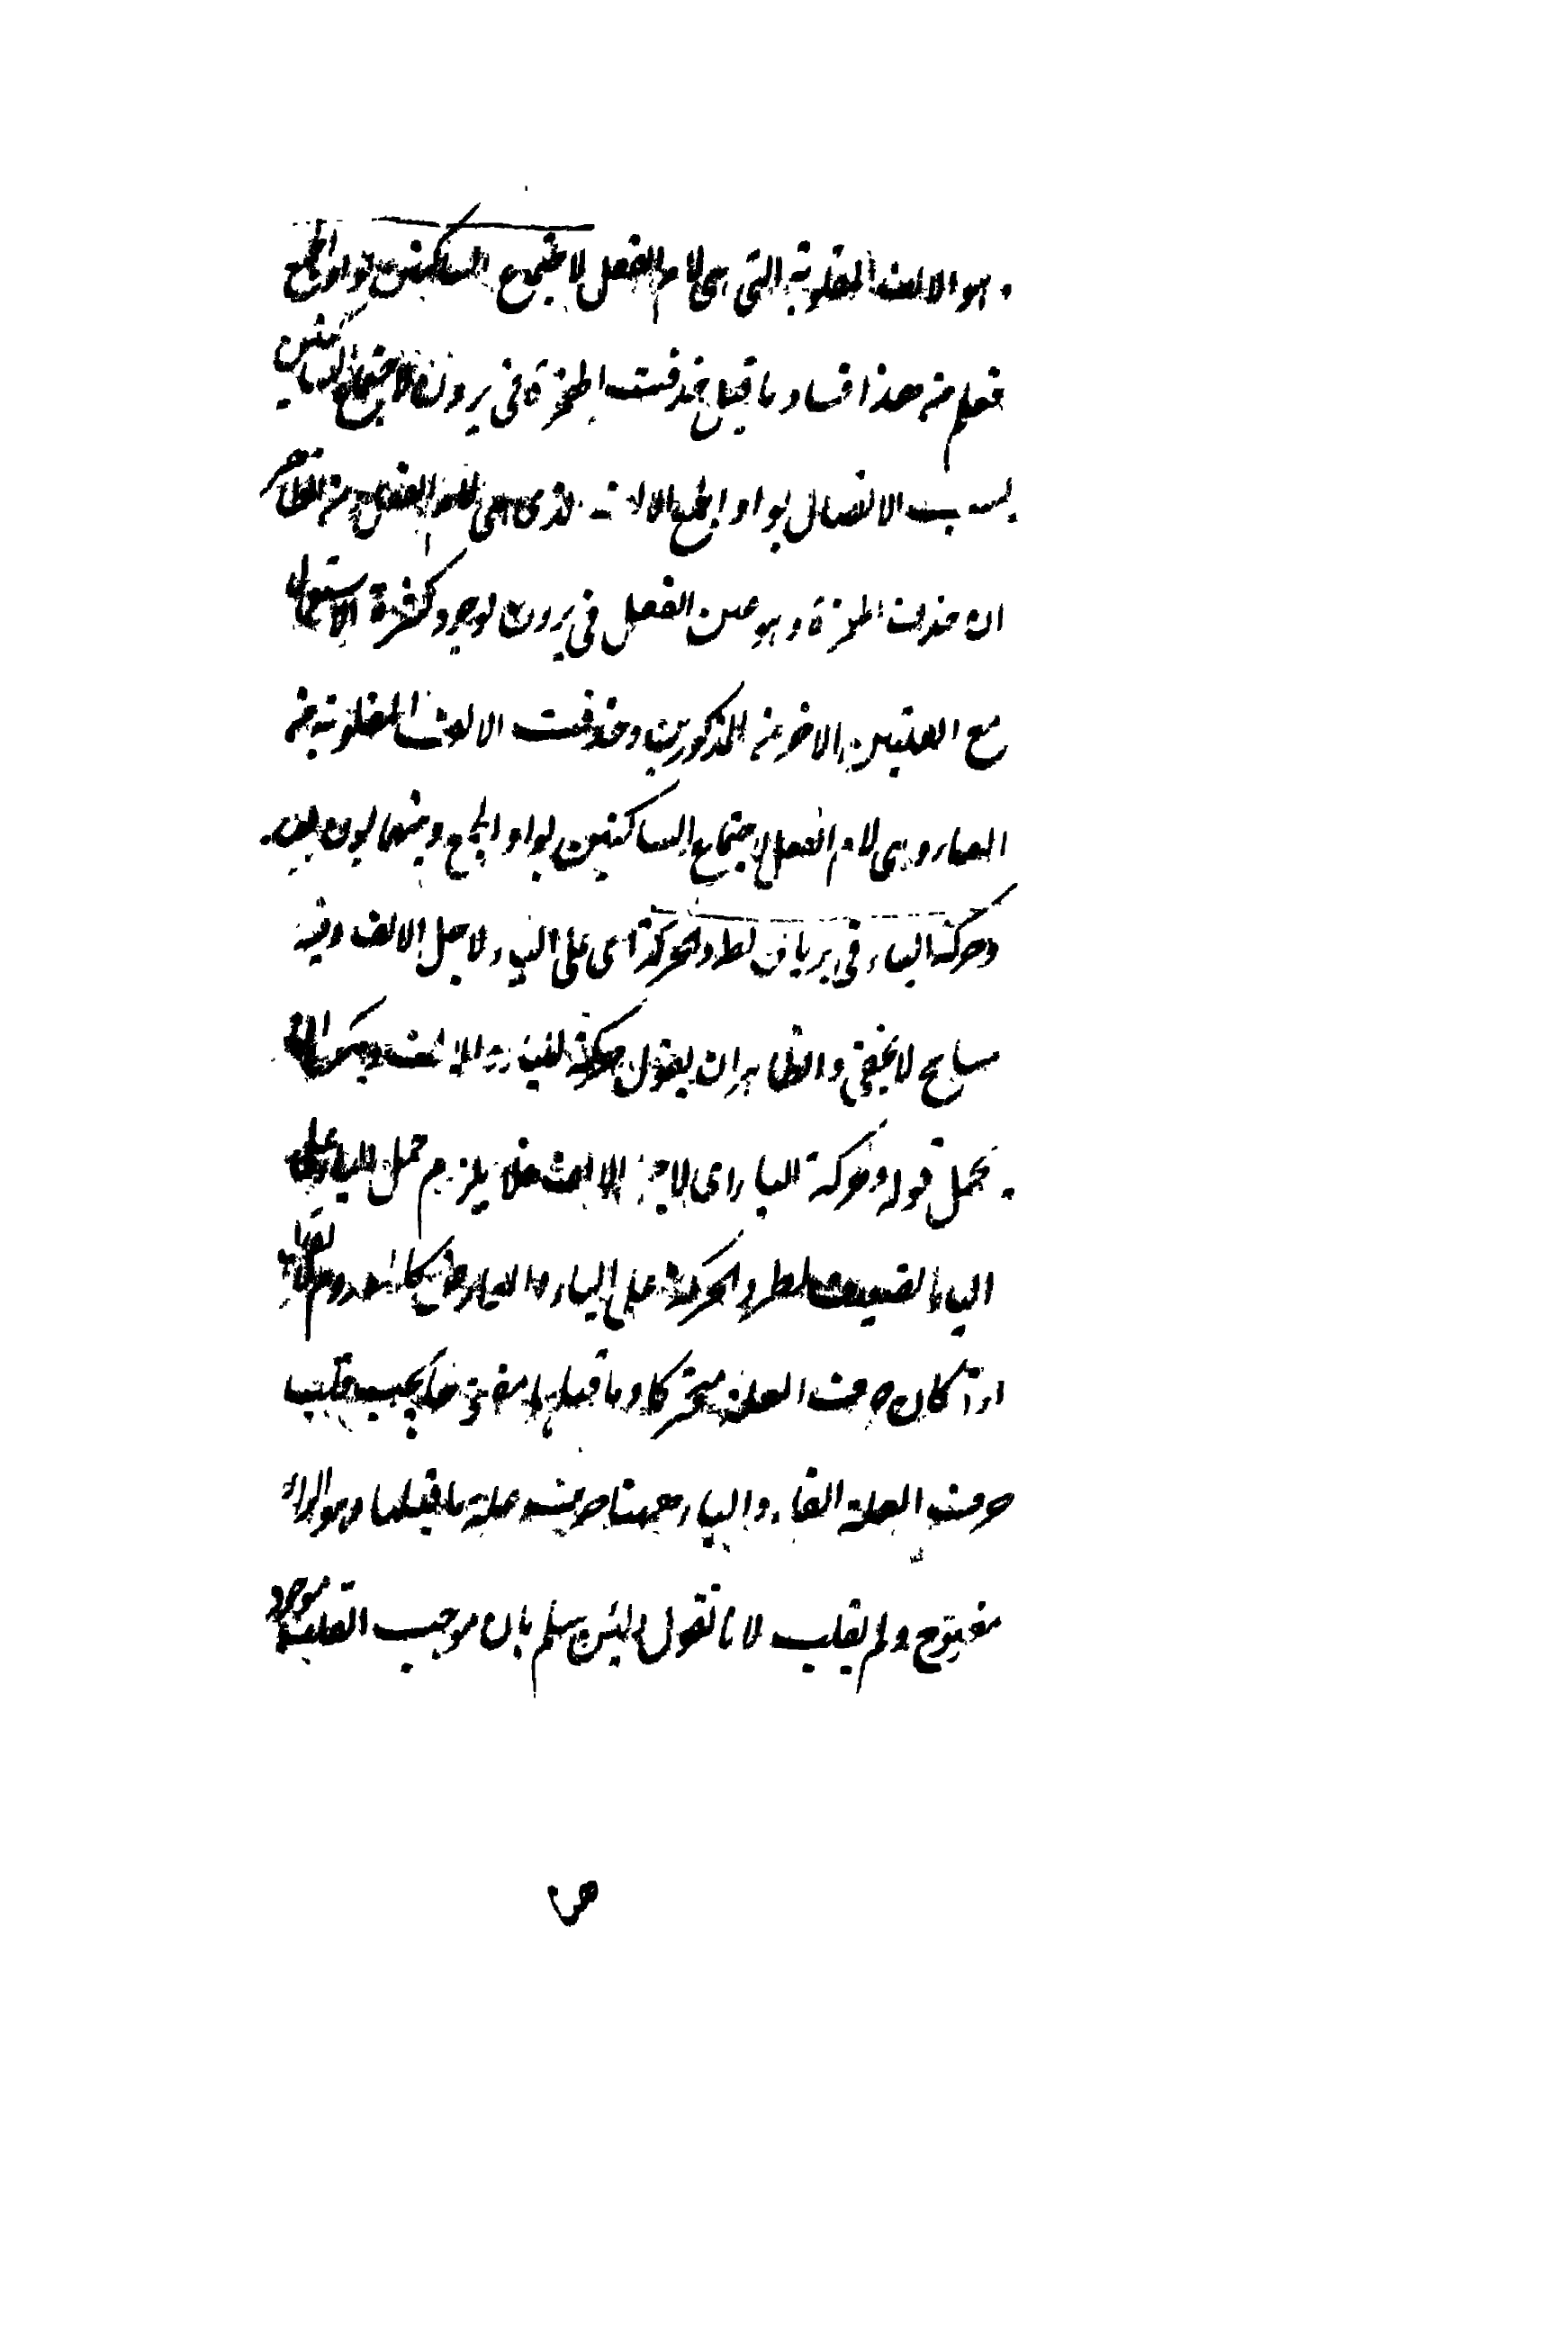 هو الالف المقلوبة التى هى لام الفعل لاجتماع الساكنين بواو الجمع
فعلم من هذا فساد ما قيل حذفت الهمزة فى يرون لاجتماع الساكنين
بسبب الاتصال بواو الجمع لالانه الذى هى لام الفعل من الظاهر
ان حذف الهمزة وهو عين الفعل فى يرون لوجود كثرة الاستعمال
مع العلتين الاخرين المذكورين وحذفت الالف المقلوبة عن
الياء وهى لام الفعل لاجتماع الساكنين بواو الجمع وبينهما بون بعيد
وحركة الياء فى يريان لطرو الحركة اى على الياء لاجل الالف وفيه
تسامح لا يخفى والظاهر ان يقول حركة الياء للالف ويمكن ان
يحمل قوله وحركة الياء اى لاجل الالف فلا يلزم حمل الياء على
الياء الضعيف لطرو الحركة على الياء والعارض كالمعدوم لا يقال
اذا كان حرف العلة متحركا وما قبلها مفتوحا يجب قلب
حرف العلة الفا والياء ههنا حرف علة ما قبلها وهو الراء
مفتوح ولم يقلب لانا نقول لئن سلم بان موجب القلب موجود